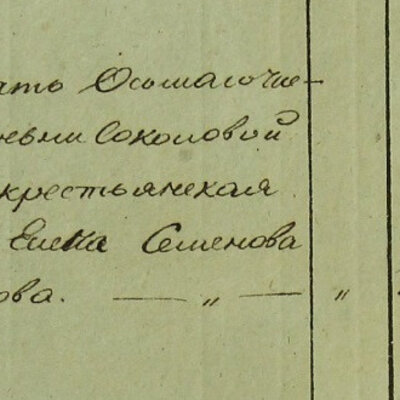 ать Осьмаго чис-
ньни Соколовой
крестьянская
Елена Семенова
ова. — „ — „